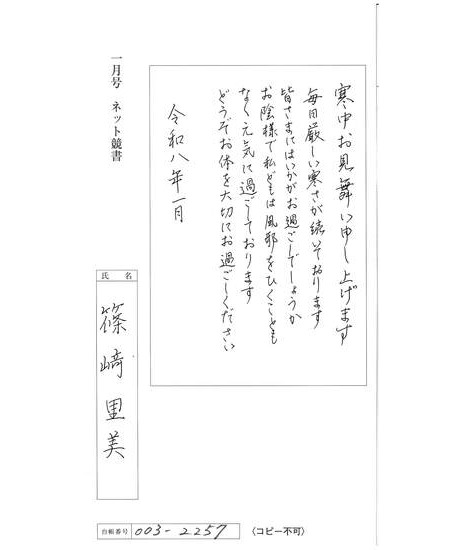 寒中お見舞い申し上げます
毎日厳しい寒さが続いております
皆さまにはいかがお過ごしでしょうか
お陰様で私どもは風邪をひくことも
なく元気に過ごしております
どうぞお体を大切にお過ごしください
令和八年一月
一月号 ネット競書
氏名
篠﨑里美
台帳番号 003-2257
〈コピー不可〉